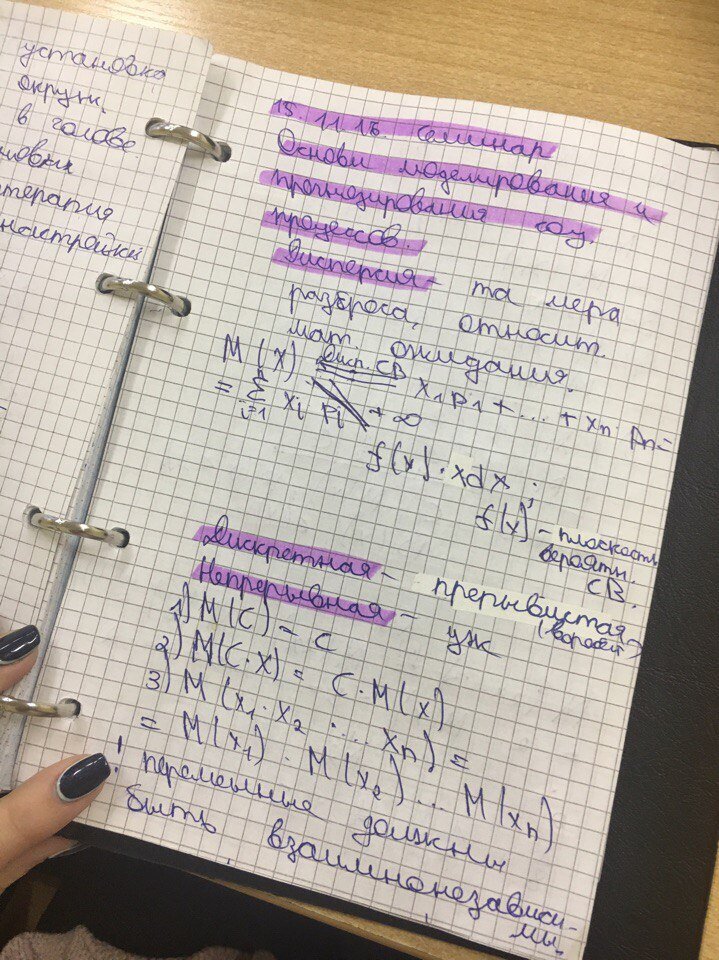 установка
окруж.
в голове
новых
терапия
настройки
15.11.16 семинар
Основи моделирования и
прогнозирования соц.
процессов.
Дисперсия – та мера
разброса, относит.
мат. ожидания.
M(X) дисп. СВ x₁p₁ + ... + xₙ pₙ =
= Σ xᵢ pᵢ + ∞
i=1
f(x)·xdx ;
f(x) – плоскость
вероятн.
СВ.
Дискретная – прерывистая
(воробей)
Непрерывная – уж
1) M(C) = C
2) M(C·X) = C·M(x)
3) M(x₁·x₂ .... xₙ) =
= M(x₁)·M(x₂)... M(xₙ)
! переменные должны
быть взаимнонезависи-
ми.